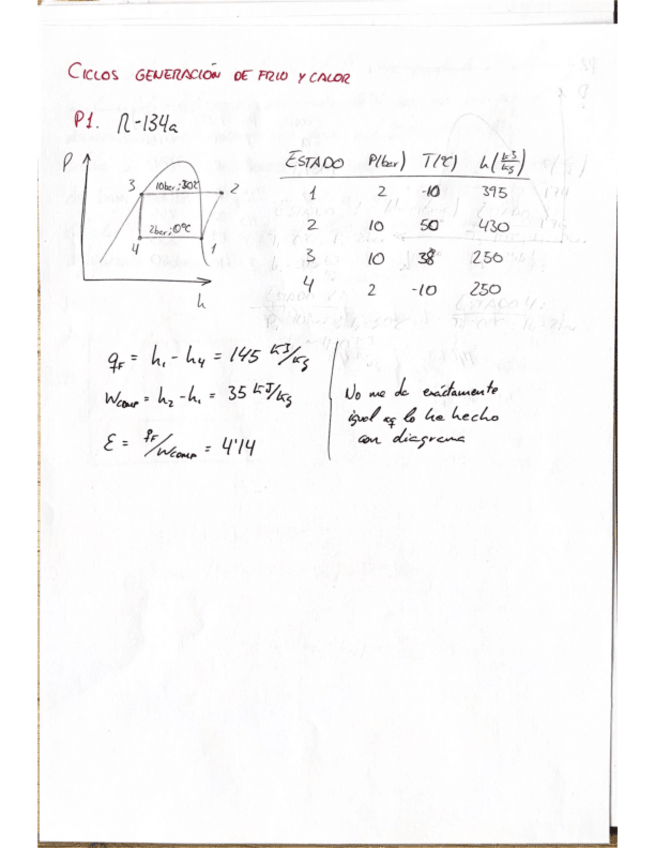 CICLOS GENERACIÓN DE FRIO Y CALOR
P1. R-134a
P
3
2
4
1
h
ESTADO P(bar) T(ºC) h(kJ/kg)
1 2 -10 395
2 10 50 430
3 10 38 250
4 2 -10 250
qF = h1 - h4 = 145 kJ/kg
Wcomp = h2 - h1 = 35 kJ/kg
Ɛ = qF/Wcomp = 4'14
No me da exáctamente
igual pq lo he hecho
con diagrama